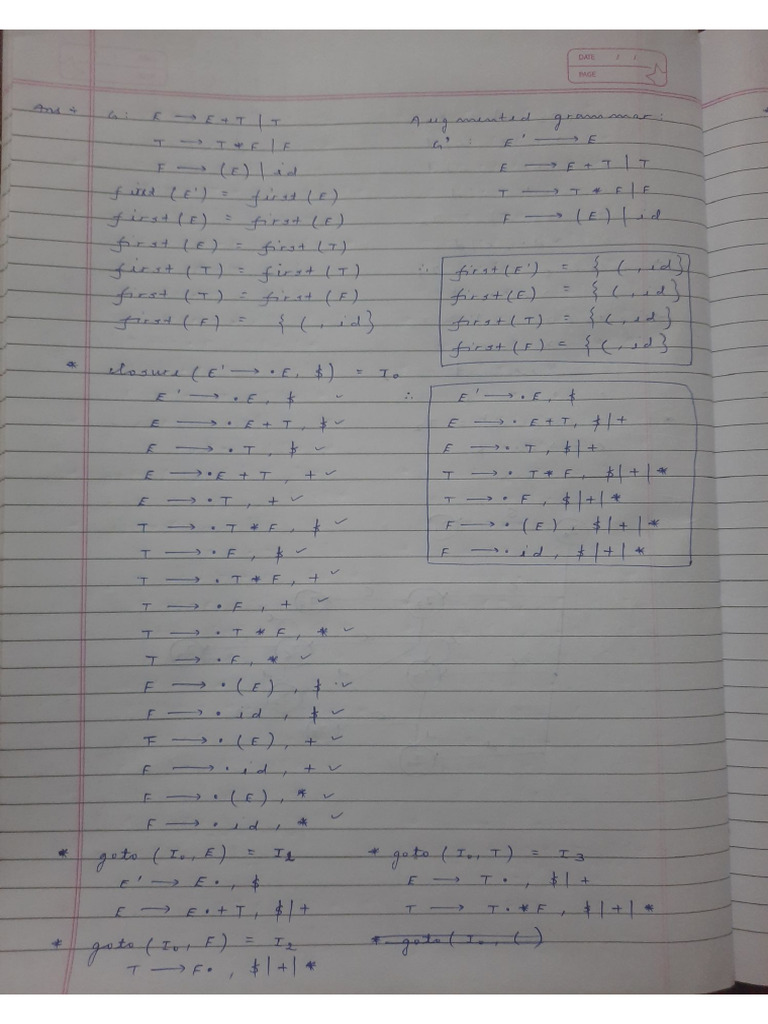 DATE / /
PAGE
Ans 4 G: E → E+T | T
T → T * F | F
F → (E) | id
first (E') = first (E)
first (E) = first (E)
first (E) = first (T)
first (T) = first (T)
first (T) = first (F)
first (F) = { ( , id}
Augmented grammar:
G' : E' → E
E → E + T | T
T → T * F | F
F → (E) | id
∴ first(E') = { ( , id}
first(E) = { ( , id}
first(T) = { ( , id}
first(F) = { ( , id}
* closure (E' → • E, $) = I₀
E' → • E, $ ✓
E → • E + T, $ ✓
E → • T, $ ✓
E → • E + T, + ✓
E → • T, + ✓
T → • T * F, $ ✓
T → • F, $ ✓
T → • T * F, + ✓
T → • F, + ✓
T → • T * F, * ✓
T → • F, * ✓
F → • (E), $ ✓
F → • id, $ ✓
F → • (E), + ✓
F → • id, + ✓
F → • (E), * ✓
F → • id, * ✓
∴ E' → • E, $
E → • E+T, $|+
E → • T, $|+
T → • T*F, $|+|*
T → • F, $|+|*
F → • (E), $|+|*
F → • id, $|+|*
* goto (I₀, E) =
E' → E •, $
E → E • + T, $|+
* goto (I₀, T) = I₃
E → T •, $|+
T → T • * F, $|+|*
* goto (I₀, F) = I₂
T → F •, $|+|*
* goto (I₀, ( )